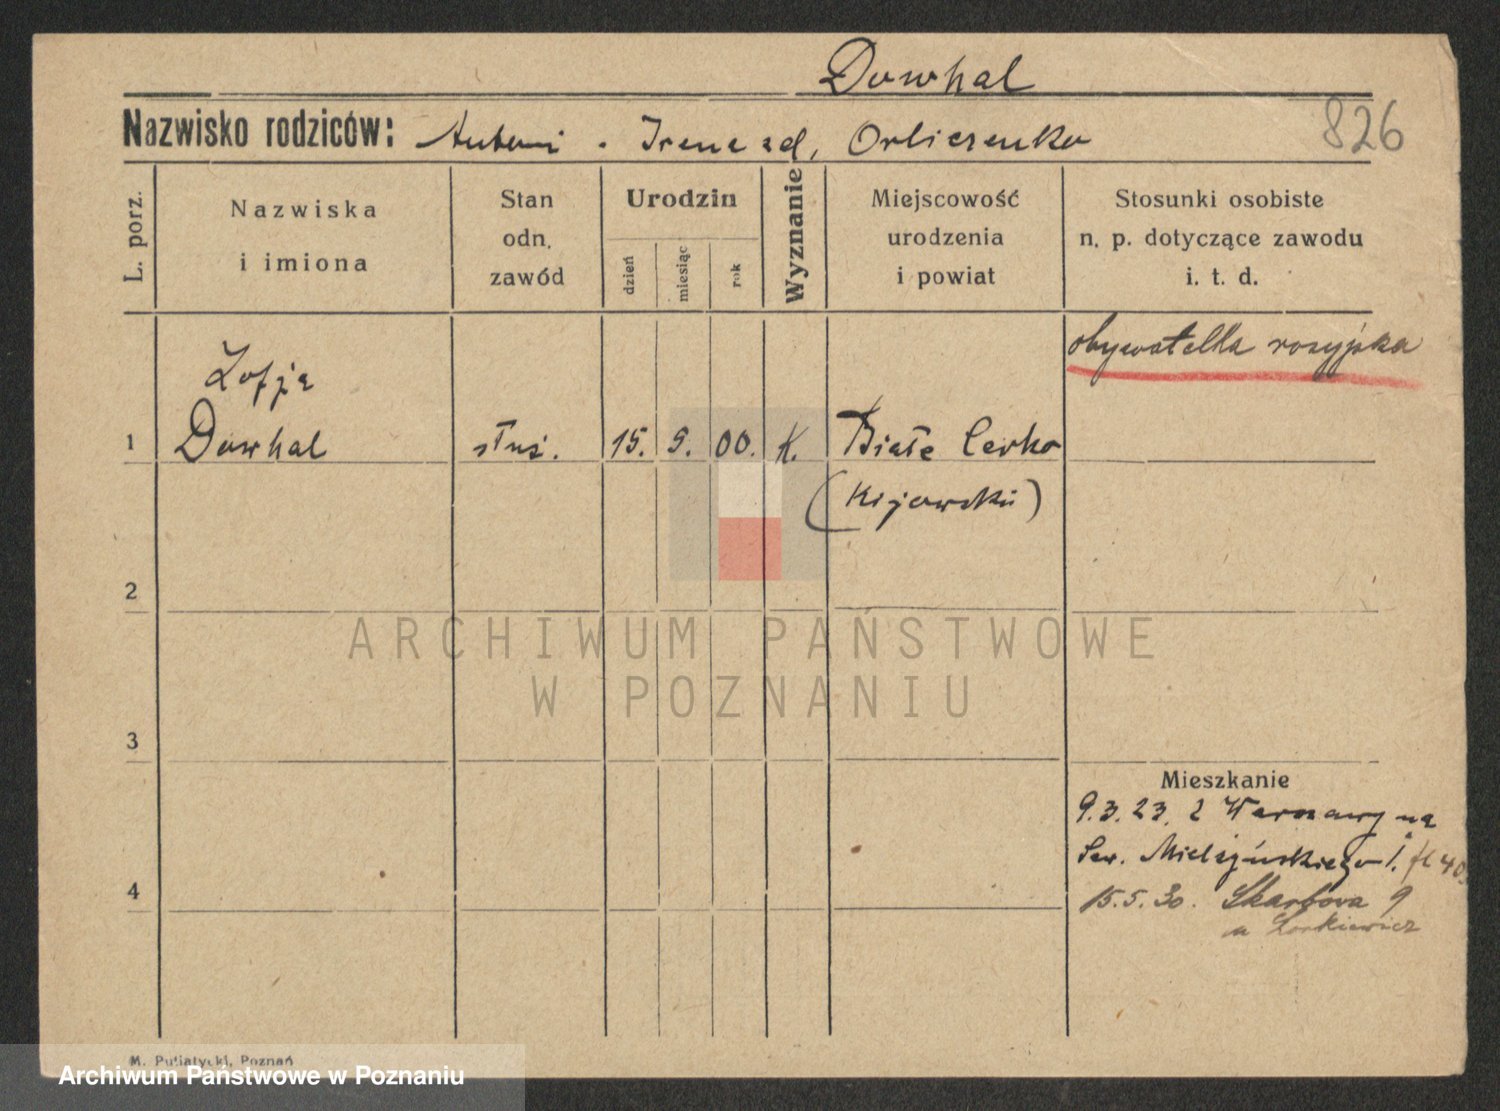 Dowhal
Nazwisko rodziców: Antoni - Irena zd. Orliczenko
826
L. porz.
Nazwiska
i imiona
Stan
odn.
zawód
Urodzin
dzień
miesiąc
rok
Wyznanie
Miejscowość
urodzenia
i powiat
Stosunki osobiste
n. p. dotyczące zawodu
i. t. d.
obywatelka rosyjska
Zofja
1 Dowhal służ. 15. 5. 00. K. Białe Cerko
(Kijowskii)
2
ARCHIWUM PAŃSTWOWE
W POZNANIU
3
Mieszkanie
9.3.23. z Warszawy na
Sew. Mielżyńskiego 1.
4
15.5.30. Skarbova 9
u Lorkiewicz
M. Putiatycki, Poznań
Archiwum Państwowe w Poznaniu